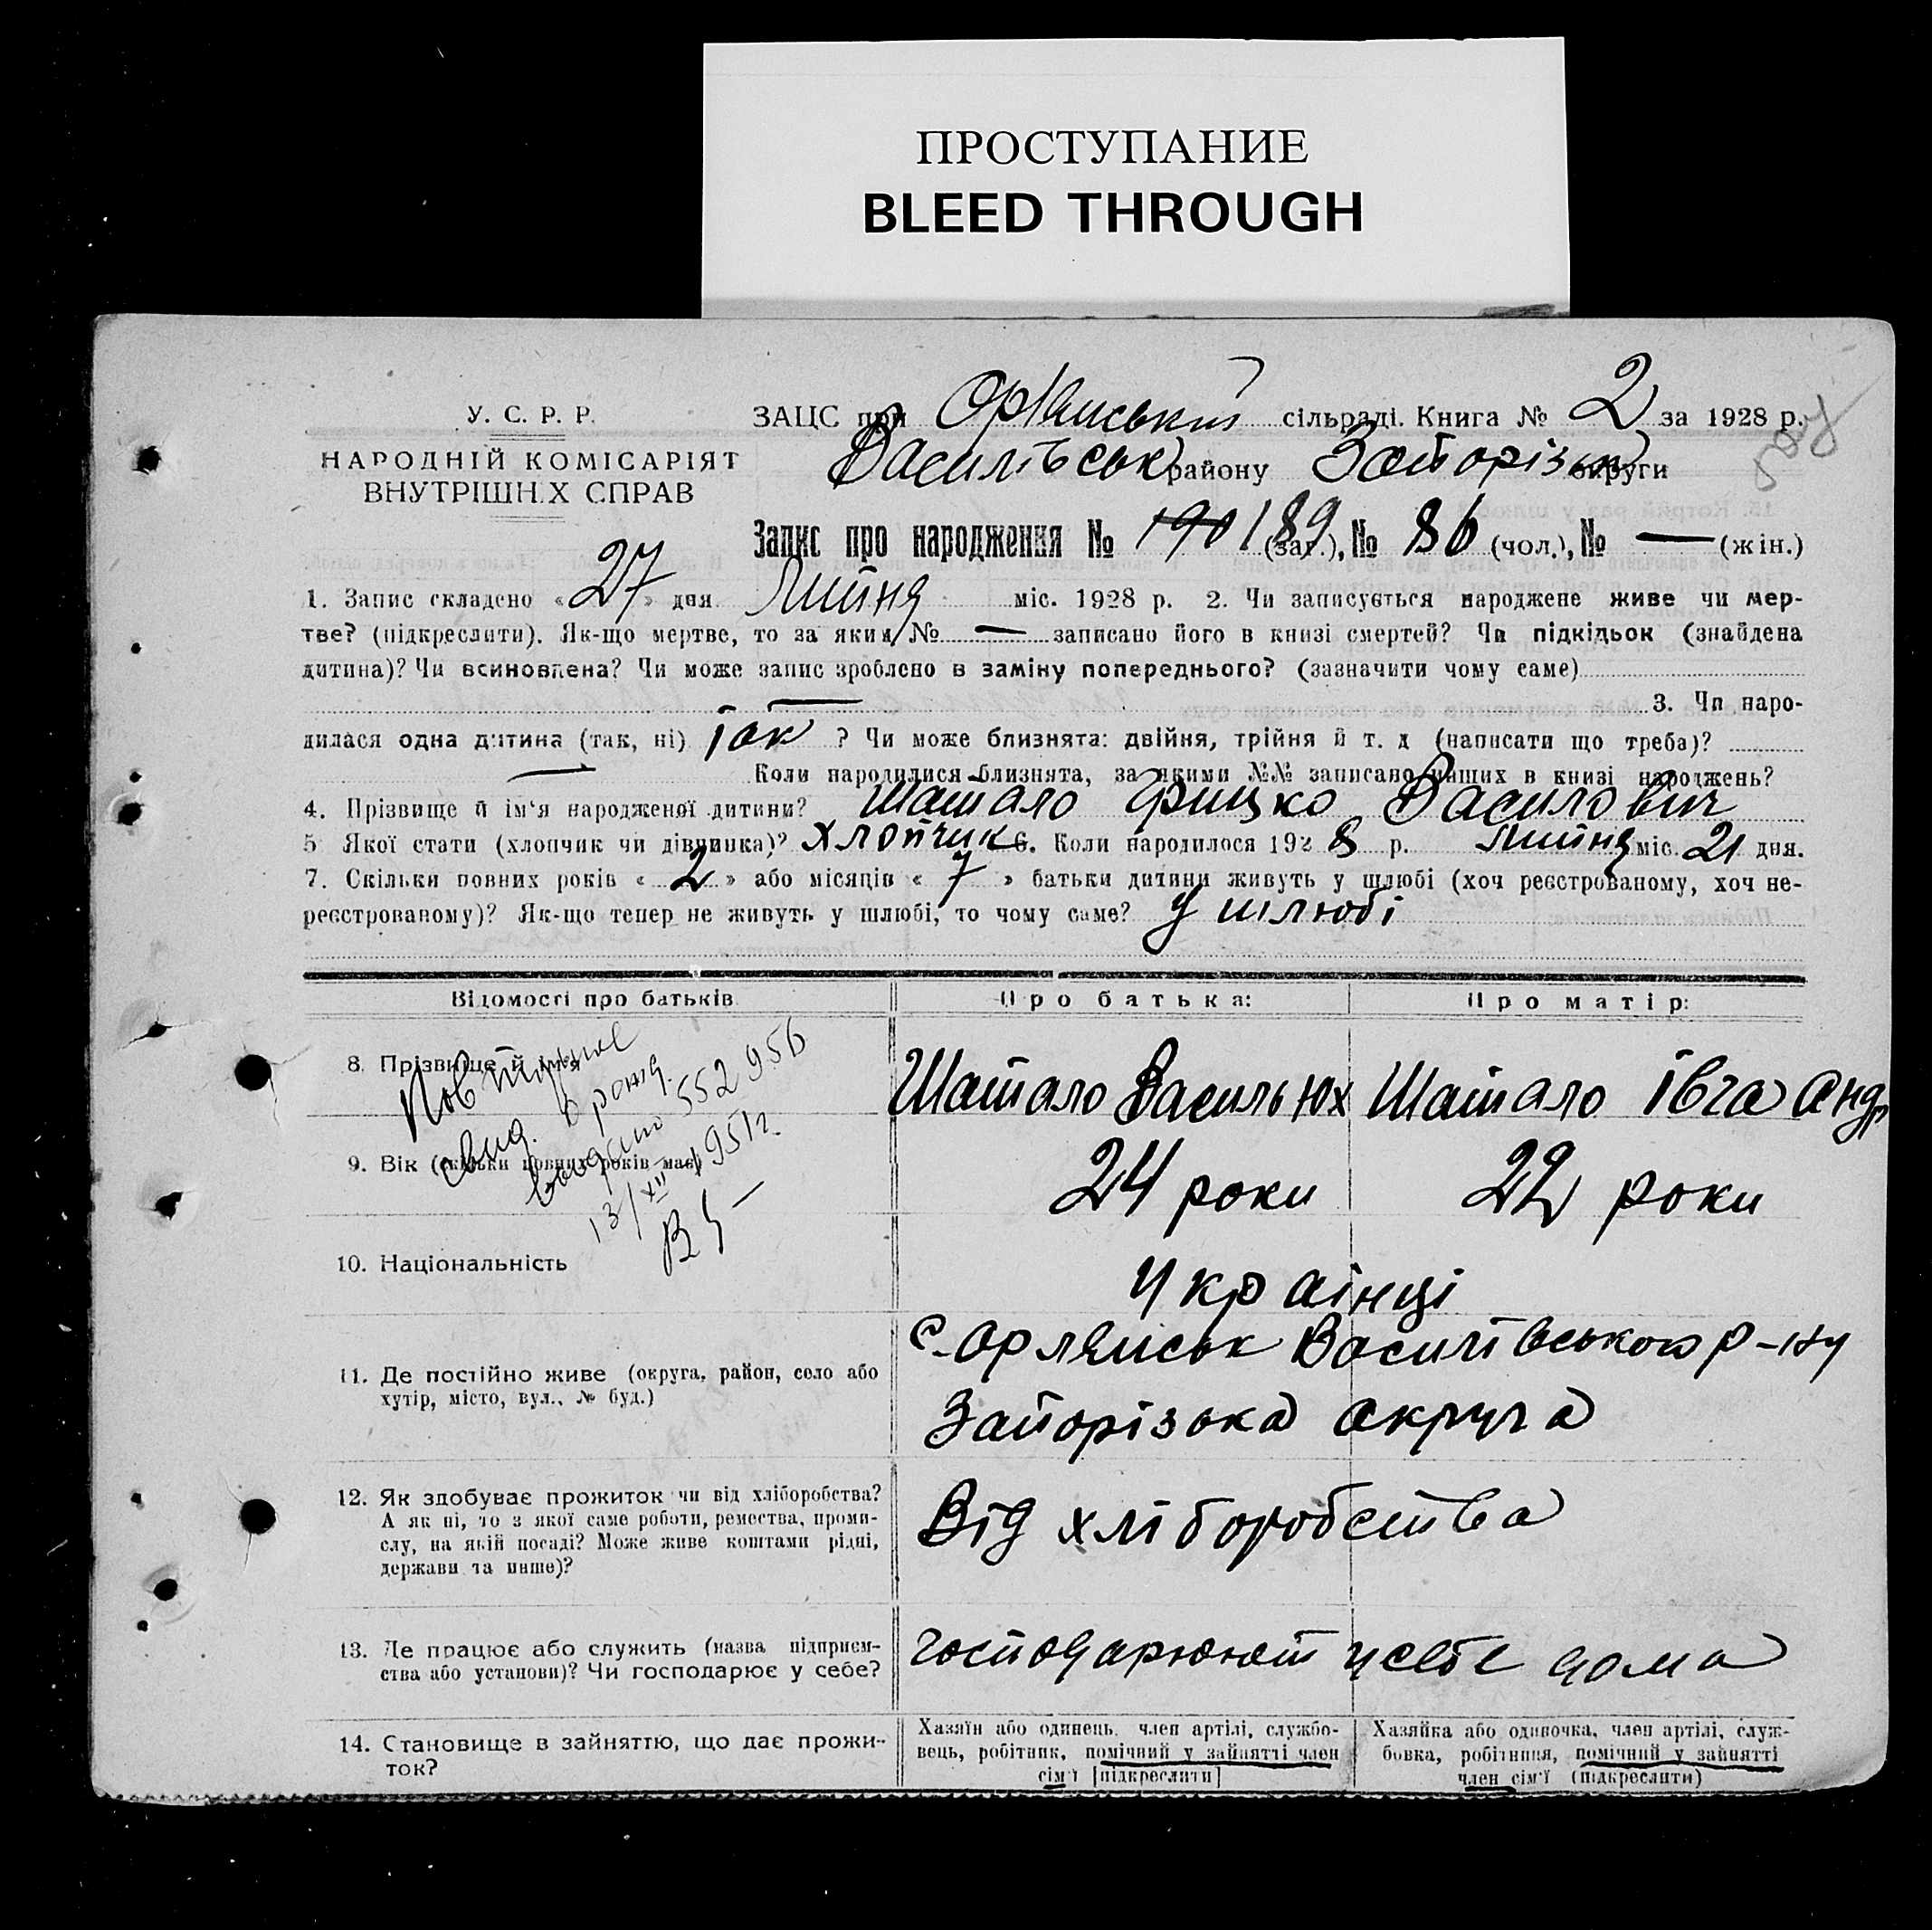 ПРОСТУПАНИЕ
BLEED THROUGH
У. С. Р. Р.
НАРОДНІЙ КОМІСАРІЯТ
ВНУТРІШНІХ СПРАВ
ЗАЦС при Орлянській сільраді. Книга № 2 за 1928 р.
Василівськ району Запорізьк округи
Запис про народження № 190 189 (заг.), № 86 (чол.), № — (жін.)
1. Запис складено « 27 » дня Липня міс. 1928 р. 2. Чи записується народжене живе чи мер-
тве? (підкреслити). Як-що мертве, то за яким № — записано його в книзі смертей? Чи підкідьок (знайдена
дитина)? Чи всиновлена? Чи може запис зроблено в заміну попереднього? (зазначити чому саме)
— 3. Чи наро-
дилася одна дитина (так, ні) так ? Чи може близнята: двійня, трійня й т. д (написати що треба)?
— Коли народилися близнята, за якими №№ записано інших в книзі народжень? —
4. Прізвище й ім'я народженої дитини? Шатало Грицко Василович
5 Якої стати (хлопчик чи дівчинка)? Хлопчик 6. Коли народилося 1928 р. Липня міс. 21 дня.
7. Скільки повних років « 2 » або місяців « 7 » батьки дитини живуть у шлюбі (хоч реєстрованому, хоч не-
реєстрованому)? Як-що тепер не живуть у шлюбі, то чому саме? У шлюбі
Відомості про батьків
Про батька:
Про матір:
8. Прізвище й ім'я
Шатало Василь Юх
Шатало Івга Андр
Повторное
свид. о рожд.
выдано 552956
13/XII 1951г.
9. Вік (скільки повних років має)
24 роки
22 роки
10. Національність
Украінці
11. Де постійно живе (округа, район, село або
хутір, місто, вул., № буд.)
с. Орлянськ Василівського р-ну
Запорізька округа
12. Як здобуває прожиток чи від хліборобства?
А як ні, то з якої саме роботи, ремества, проми-
слу, на якій посаді? Може живе коштами рідні,
держави та инше)?
Від хліборобства
13. Де працює або служить (назва підприєм-
ства або установи)? Чи господарює у себе?
господарюють у себе дома
14. Становище в зайняттю, що дає прожи-
ток?
Хазяїн або одинець, член артілі, службо-
вець, робітник, помічний у зайнятті член
сім'ї [підкреслити]
Хазяйка або одиночка, член артілі, служ-
бовка, робітниця, помічний у зайнятті
член сім'ї (підкреслити)